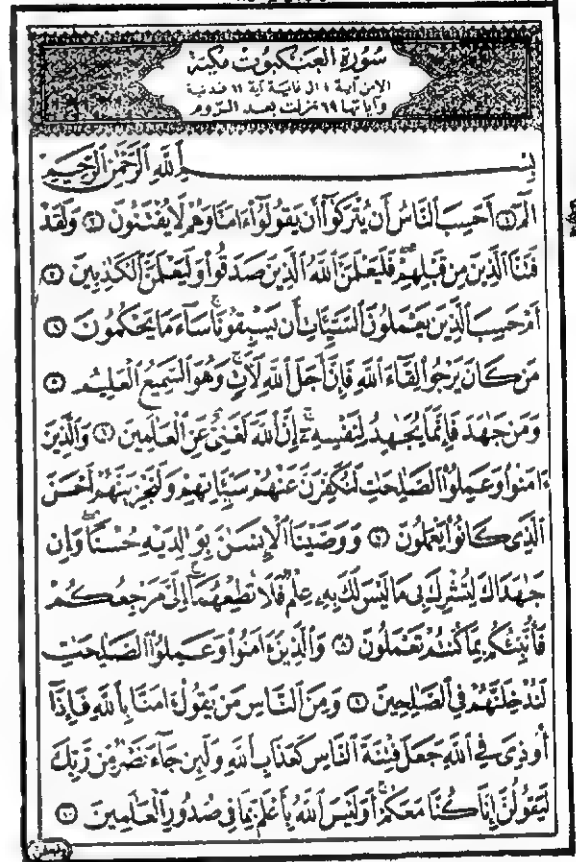 سُورَةُ العَنكبُوتِ مكيّة
الا من آية ١ الى غاية آية ١١ فمدنية
وآياتها ٦٩ نزلت بعد الرّوم
بِسْمِ اللَّهِ الرَّحْمَٰنِ الرَّحِيمِ
الٓمٓ ١ أَحَسِبَ ٱلنَّاسُ أَن يُتْرَكُوٓا۟ أَن يَقُولُوٓا۟ ءَامَنَّا وَهُمْ لَا يُفْتَنُونَ ٢ وَلَقَدْ
فَتَنَّا ٱلَّذِينَ مِن قَبْلِهِمْ ۖ فَلَيَعْلَمَنَّ ٱللَّهُ ٱلَّذِينَ صَدَقُوا۟ وَلَيَعْلَمَنَّ ٱلْكَٰذِبِينَ ٣
أَمْ حَسِبَ ٱلَّذِينَ يَعْمَلُونَ ٱلسَّيِّـَٔاتِ أَن يَسْبِقُونَا ۚ سَآءَ مَا يَحْكُمُونَ ٤
مَن كَانَ يَرْجُوا۟ لِقَآءَ ٱللَّهِ فَإِنَّ أَجَلَ ٱللَّهِ لَءَاتٍ ۚ وَهُوَ ٱلسَّمِيعُ ٱلْعَلِيمُ ٥
وَمَن جَٰهَدَ فَإِنَّمَا يُجَٰهِدُ لِنَفْسِهِۦٓ ۚ إِنَّ ٱللَّهَ لَغَنِىٌّ عَنِ ٱلْعَٰلَمِينَ ٦ وَٱلَّذِينَ
ءَامَنُوا۟ وَعَمِلُوا۟ ٱلصَّٰلِحَٰتِ لَنُكَفِّرَنَّ عَنْهُمْ سَيِّـَٔاتِهِمْ وَلَنَجْزِيَنَّهُمْ أَحْسَنَ
ٱلَّذِى كَانُوا۟ يَعْمَلُونَ ٧ وَوَصَّيْنَا ٱلْإِنسَٰنَ بِوَٰلِدَيْهِ حُسْنًا ۖ وَإِن
جَٰهَدَاكَ لِتُشْرِكَ بِى مَا لَيْسَ لَكَ بِهِۦ عِلْمٌ فَلَا تُطِعْهُمَآ ۚ إِلَىَّ مَرْجِعُكُمْ
فَأُنَبِّئُكُم بِمَا كُنتُمْ تَعْمَلُونَ ٨ وَٱلَّذِينَ ءَامَنُوا۟ وَعَمِلُوا۟ ٱلصَّٰلِحَٰتِ
لَنُدْخِلَنَّهُمْ فِى ٱلصَّٰلِحِينَ ٩ وَمِنَ ٱلنَّاسِ مَن يَقُولُ ءَامَنَّا بِٱللَّهِ فَإِذَآ
أُوذِىَ فِى ٱللَّهِ جَعَلَ فِتْنَةَ ٱلنَّاسِ كَعَذَابِ ٱللَّهِ وَلَئِن جَآءَ نَصْرٌ مِّن رَّبِّكَ
لَيَقُولُنَّ إِنَّا كُنَّا مَعَكُمْ ۚ أَوَلَيْسَ ٱللَّهُ بِأَعْلَمَ بِمَا فِى صُدُورِ ٱلْعَٰلَمِينَ ١٠
وليعلمن